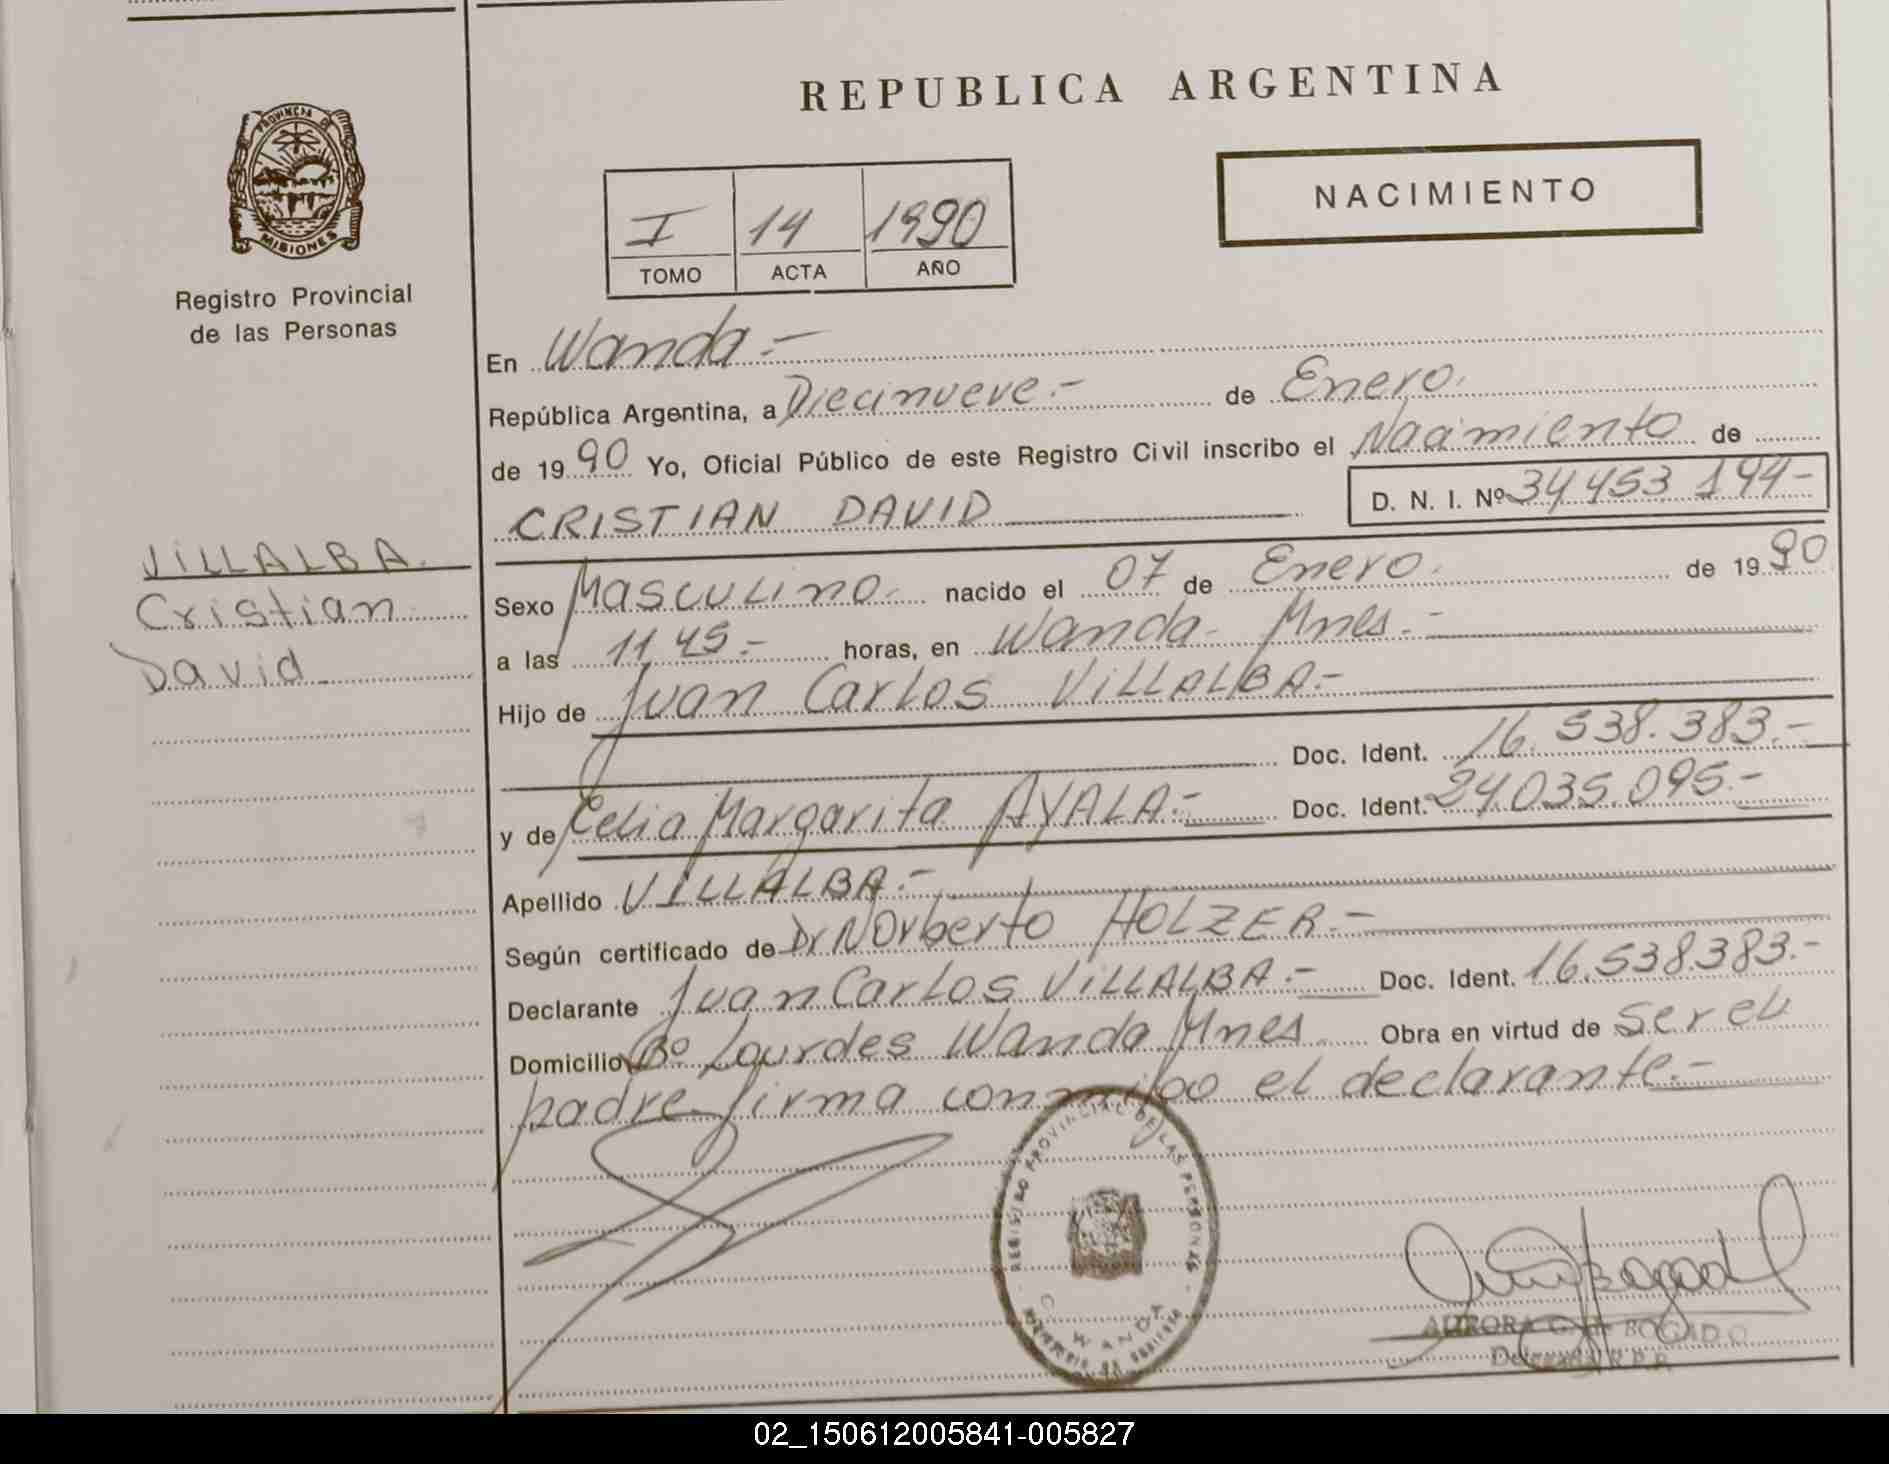 REPUBLICA ARGENTINA
PROVINCIA DE
MISIONES
Registro Provincial
de las Personas
I 14 1990
TOMO ACTA AÑO
NACIMIENTO
En Wanda.-
República Argentina, a Diecinueve.- de Enero.
de 1990 Yo, Oficial Público de este Registro Civil inscribo el Nacimiento de
CRISTIAN DAVID D. N. I. Nº 34 453 194-
VILLALBA.
Cristian
David
Sexo Masculino.- nacido el 07 de Enero. de 1990
a las 11 45.- horas, en Wanda- Mnes.-
Hijo de Juan Carlos VILLALBA.-
Doc. Ident. 16.538.383.-
y de Celia Margarita AYALA.- Doc. Ident. 24.035.095.-
Apellido VILLALBA.-
Según certificado de Dr Norberto HOLZER.-
Declarante Juan Carlos VILLALBA.- Doc. Ident. 16.538.383.-
Domicilio Bº Lourdes Wanda Mnes. Obra en virtud de ser el
padre firma conmigo el declarante.-
REGISTRO PROVINCIAL DE LAS PERSONAS
WANDA
AURORA G. de BOGADO
Delegada R.P.P.
02_150612005841-005827